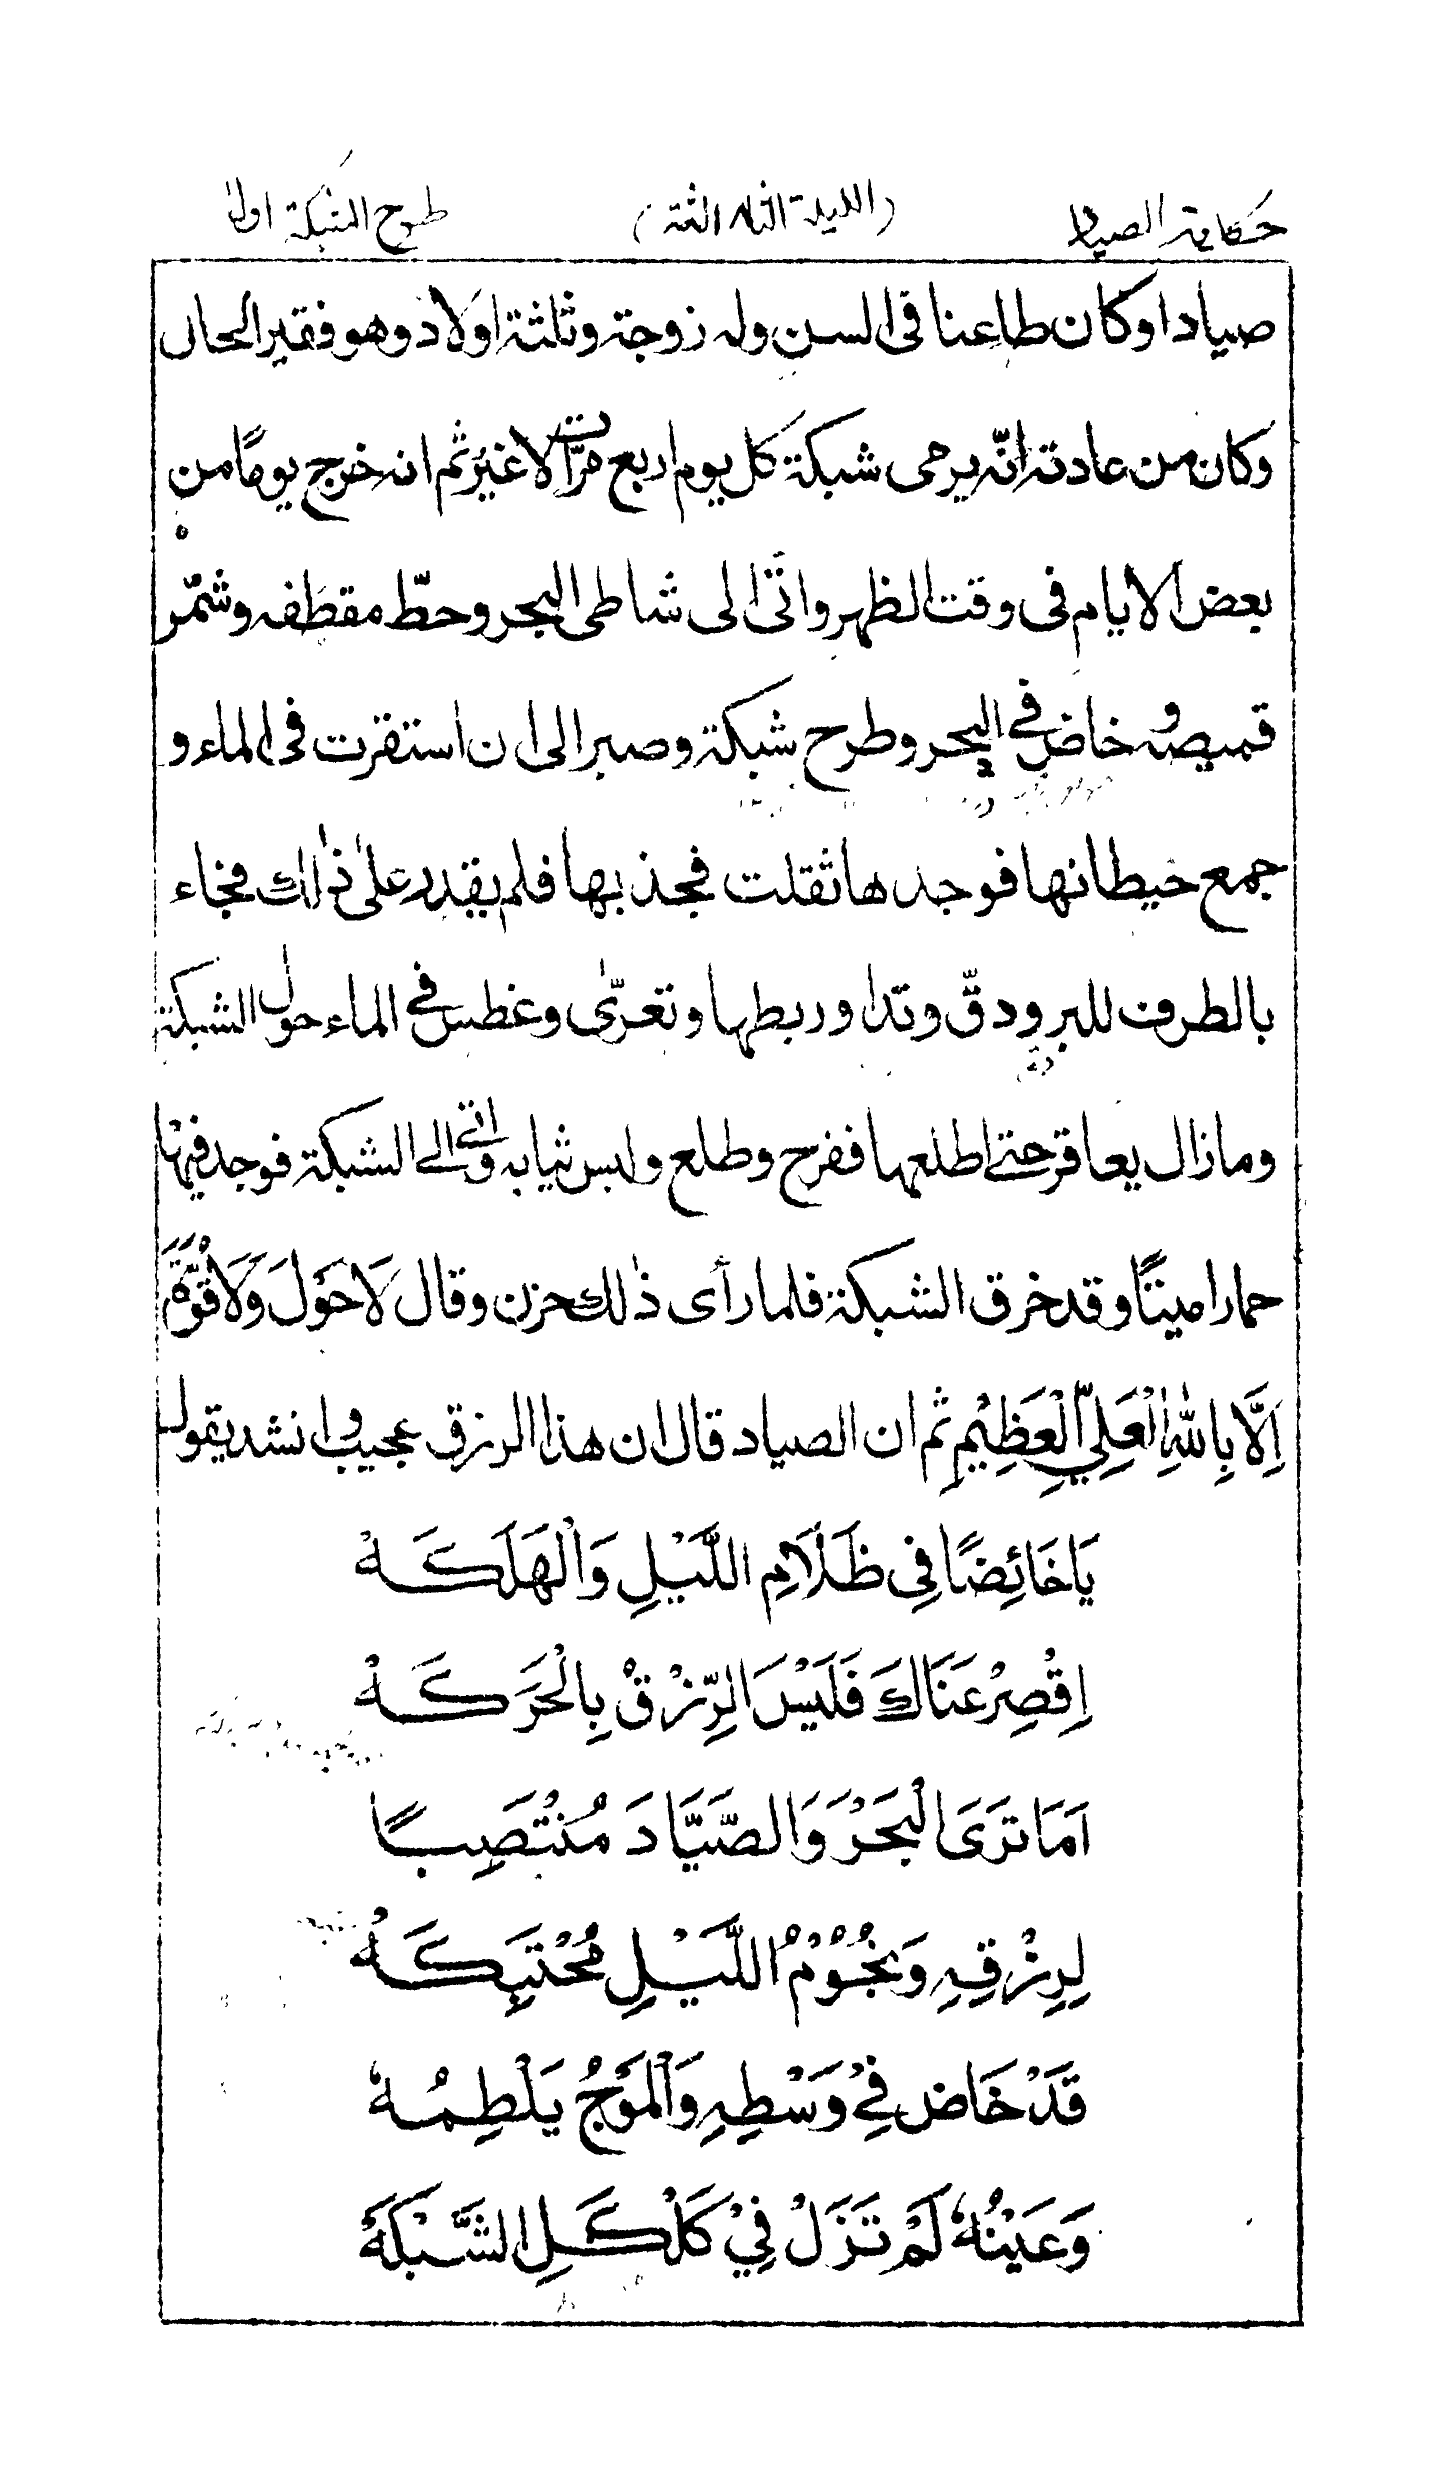 حكاية الصياد (الليلة الثالثة) طرح الشبكة اولا
صيادا وكان طاعنا فى السن وله زوجة وثلثة اولاد وهو فقير الحال
وكان من عادته انّه يرمى شبكة كل يوم اربع مرّات لا غير ثم انه خرج يومًا من
بعض الايام فى وقت الظهر واتى الى شاطى البحر وحطّ مقطفه وشمّر
قميصه وخاض فى البحر وطرح شبكة وصبر الى ان استقرت فى الماء و
جمع خيطانها فوجدها ثقلت فجذبها فلم يقدر على ذالك فجاء
بالطرف للبر ودقّ وتدا وربطها وتعرّى وغطس فى الماء حول الشبكة
وما زال يعاقر حتى اطلعها ففرح وطلع ولبس ثيابه واتى الى الشبكة فوجد فيها
حمارا ميتًا وقد خرق الشبكة فلما رأى ذلك حزن وقال لَا حَوْلَ وَلَا قُوَّةَ
اِلَّا بِاللهِ الْعَلِيِّ الْعَظِيْمِ ثم ان الصياد قال ان هذا الرزق عجيب وانشد يقول
يَا خَائِضًا فِى ظَلَامِ اللَّيْلِ وَالْهَلَكَهْ
اِقْصِرْ عَنَاكَ فَلَيْسَ الرِّزْقُ بِالْحَرَكَهْ
اَمَا تَرَى الْبَحْرَ وَالصَّيَّادَ مُنْتَصِبًا
لِرِزْقِهِ وَنُجُوْمُ اللَّيْلِ مُحْتَبِكَهْ
قَدْ خَاضَ فِيْ وَسْطِهِ وَالْمَوْجُ يَلْطِمُهُ
وَعَيْنُهُ لَمْ تَزَلْ فِيْ كَلْكَلِ الشَّبَكَهْ